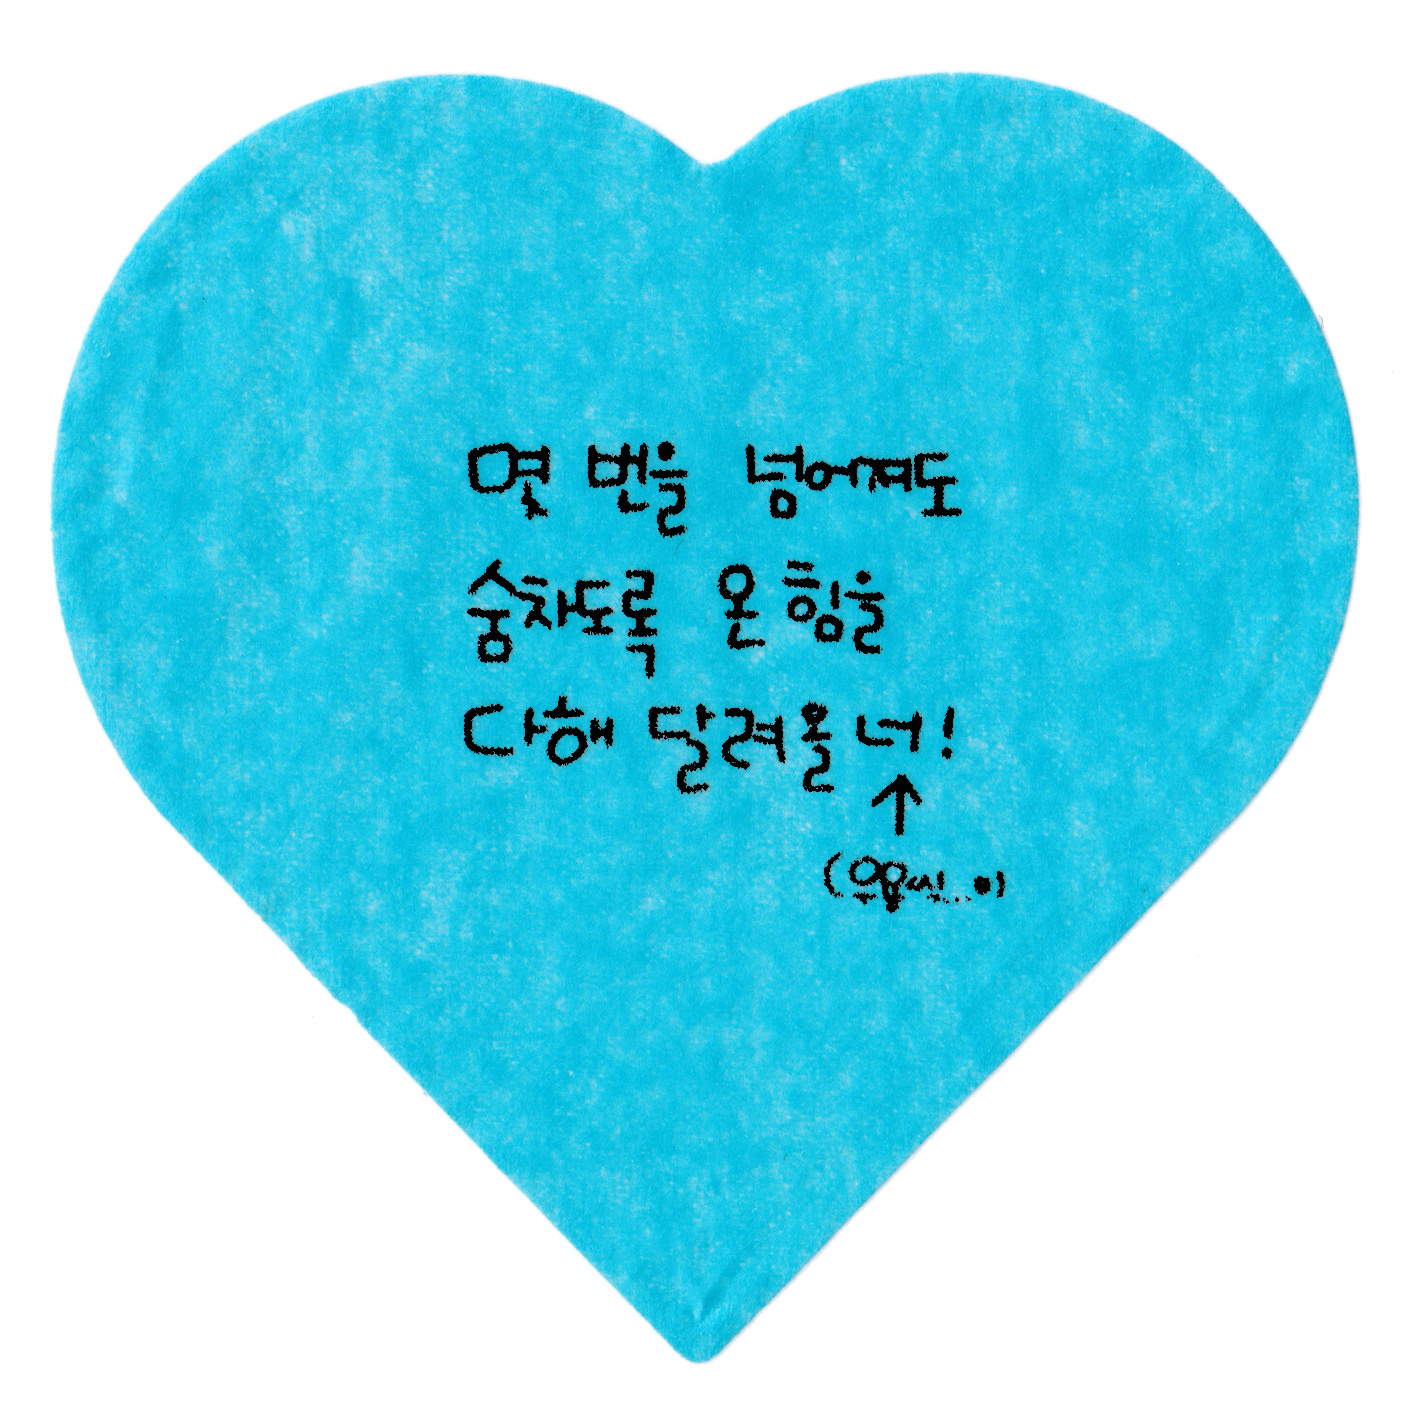 몇 번을 넘어져도
숨차도록 온 힘을
다해 달려올 너!
↑